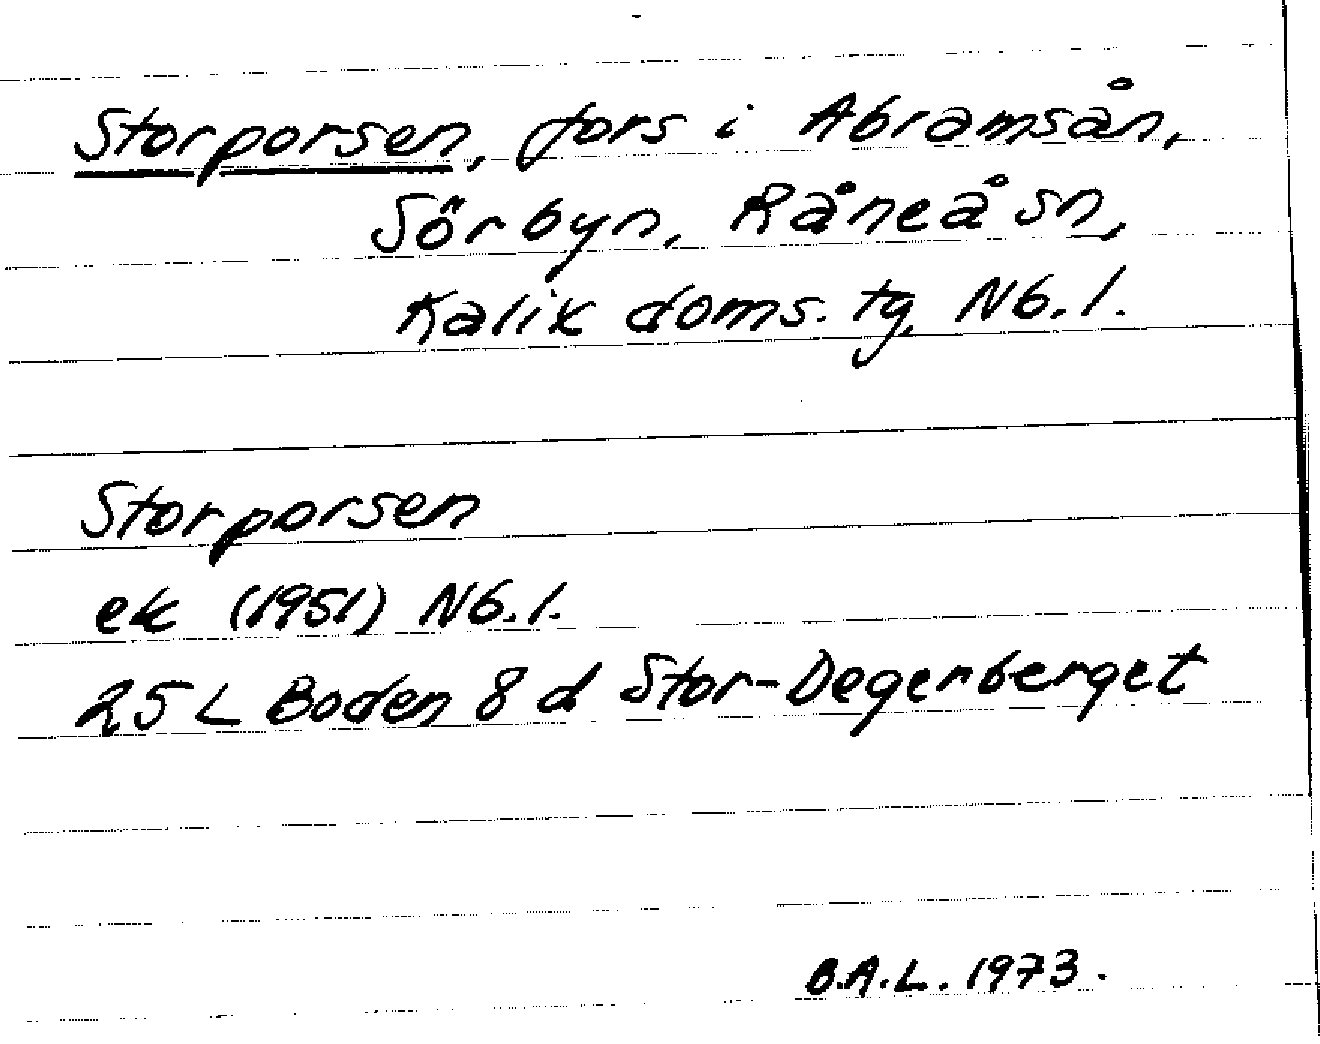 Storporsen, fors i Abramsån,
Sörbyn, Råneå sn,
Kalix doms. tg, Nb. l.
Storporsen
ek (1951) Nb. l.
25 L Boden 8 d Stor-Degerberget
B.A.L. 1973.